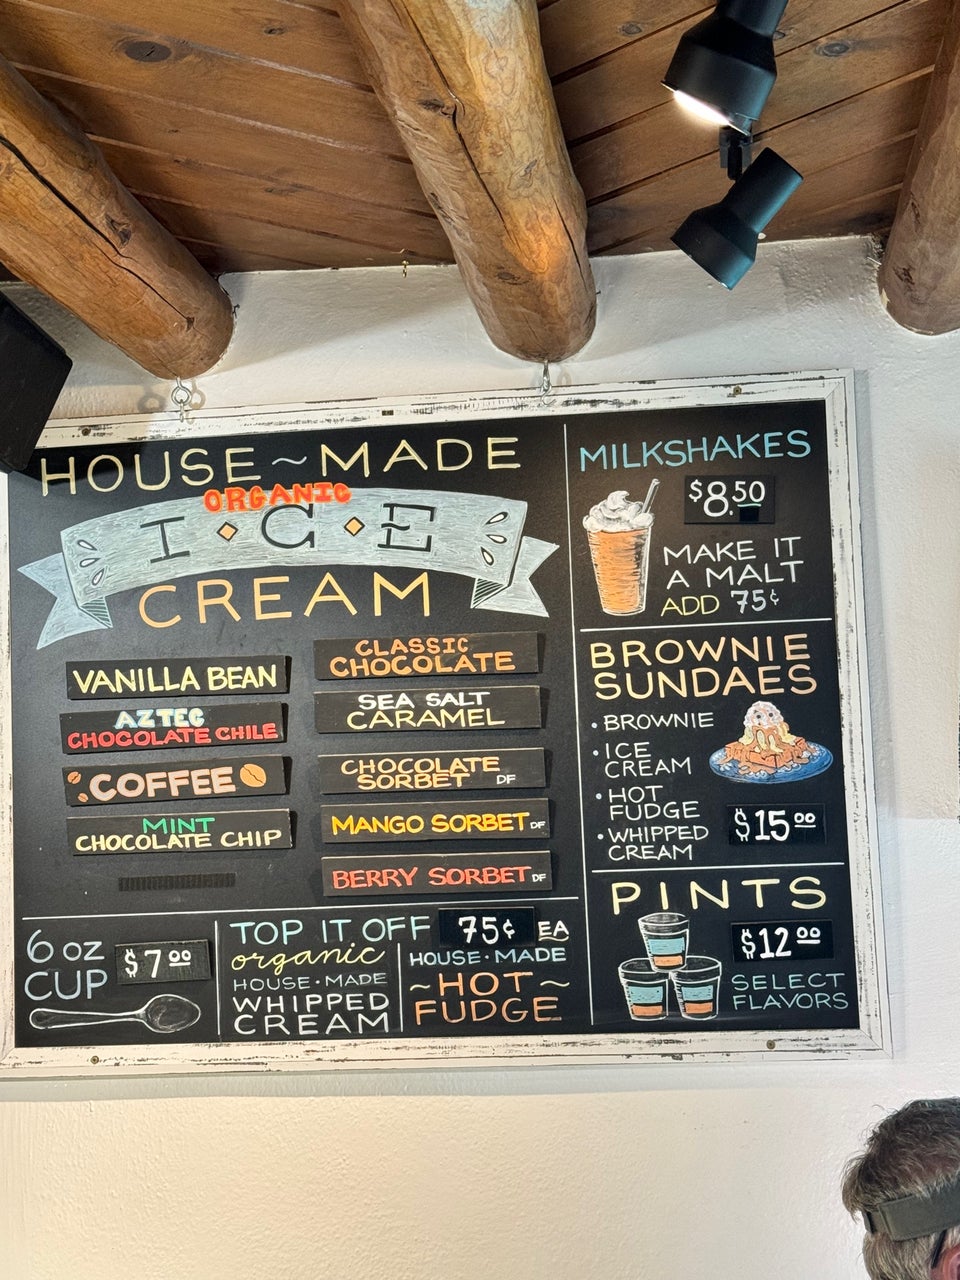 HOUSE~MADE
ORGANIC
I·C·E
CREAM
VANILLA BEAN
AZTEC
CHOCOLATE CHILE
COFFEE
MINT
CHOCOLATE CHIP
CLASSIC
CHOCOLATE
SEA SALT
CARAMEL
CHOCOLATE
SORBET DF
MANGO SORBET DF
BERRY SORBET DF
6 OZ
CUP
$7.00
TOP IT OFF 75¢ EA
organic
HOUSE·MADE
WHIPPED
CREAM
HOUSE·MADE
~HOT~
FUDGE
MILKSHAKES
$8.50
MAKE IT
A MALT
ADD 75¢
BROWNIE
SUNDAES
• BROWNIE
• ICE
CREAM
• HOT
FUDGE
• WHIPPED
CREAM
$15.00
PINTS
$12.00
SELECT
FLAVORS